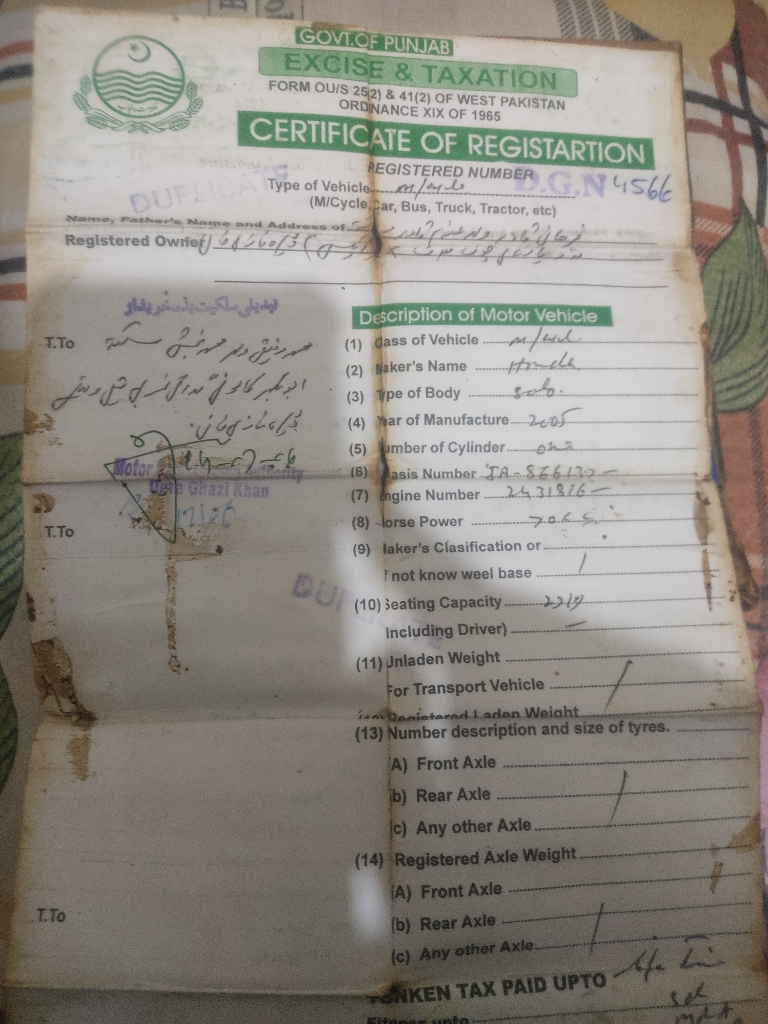 GOVT.OF PUNJAB
EXCISE & TAXATION
FORM OU/S 25(2) & 41(2) OF WEST PAKISTAN
ORDNANCE XIX OF 1965
CERTIFICATE OF REGISTARTION
REGISTERED NUMBER
DUPLICATE
D.G.N 4566
Type of Vehicle M/cycle
(M/Cycle,Car, Bus, Truck, Tractor, etc)
Name, Father's Name and Address of
Registered Owner
تبدیلی ملکیت بنام خریدار
Description of Motor Vehicle
T.To
محمد رفیق ولد محمد بخش سکنہ
ڈیرہ غازی خان
(1) Class of Vehicle M/cycle
(2) Maker's Name Honda
(3) Type of Body Solo.
(4) Year of Manufacture 2005
(5) Number of Cylinder one
(6) Chasis Number JA-866137-
(7) Engine Number 2431816-
(8) Horse Power 70cc
(9) Maker's Clasification or
if not know weel base
Motor Registration Authority
Dera Ghazi Khan
T.To
DUPLICATE
(10) Seating Capacity
Including Driver)
(11) Unladen Weight
For Transport Vehicle
(12) Registered Laden Weight
(13) Number description and size of tyres.
(A) Front Axle
(b) Rear Axle
(c) Any other Axle
(14) Registered Axle Weight
(A) Front Axle
(b) Rear Axle
(c) Any other Axle
T.To
TONKEN TAX PAID UPTO Life Time
Fitness upto